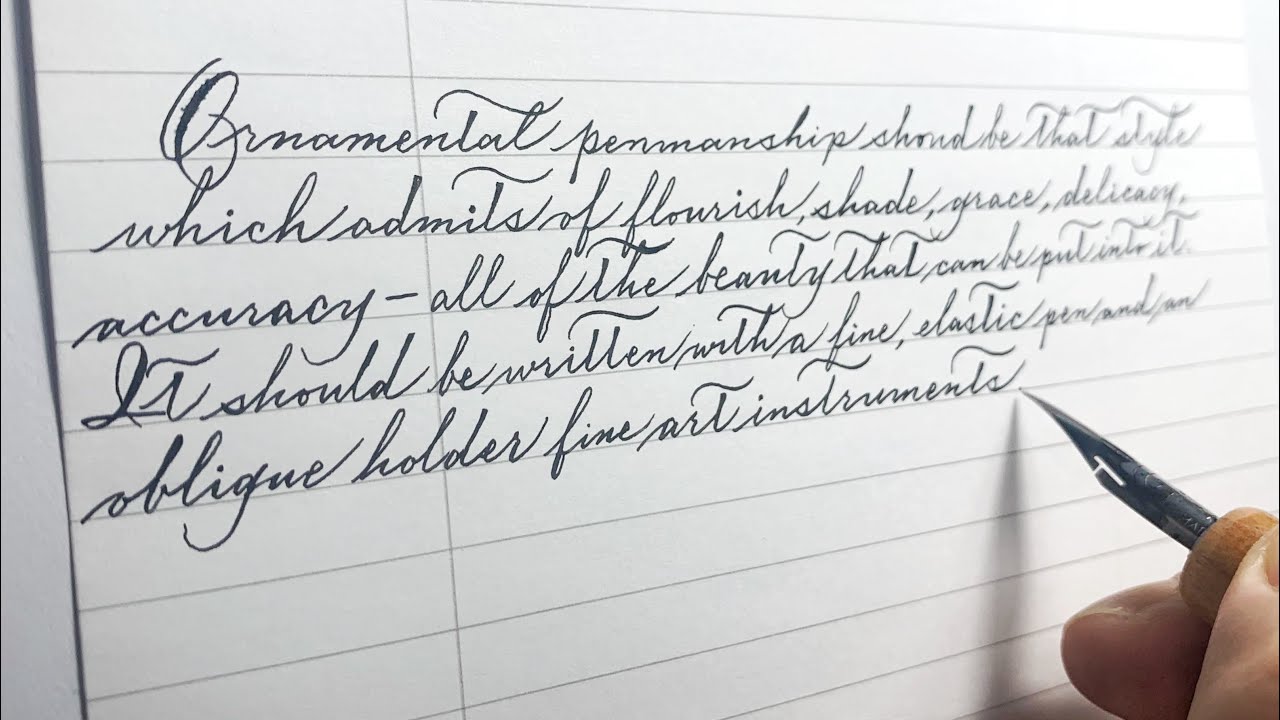 Ornamental penmanship shoud be that style
which admits of flourish, shade, grace, delicacy,
accuracy – all of the beauty that can be put into it.
It should be written with a fine, elastic pen and an
oblique holder fine art instruments.